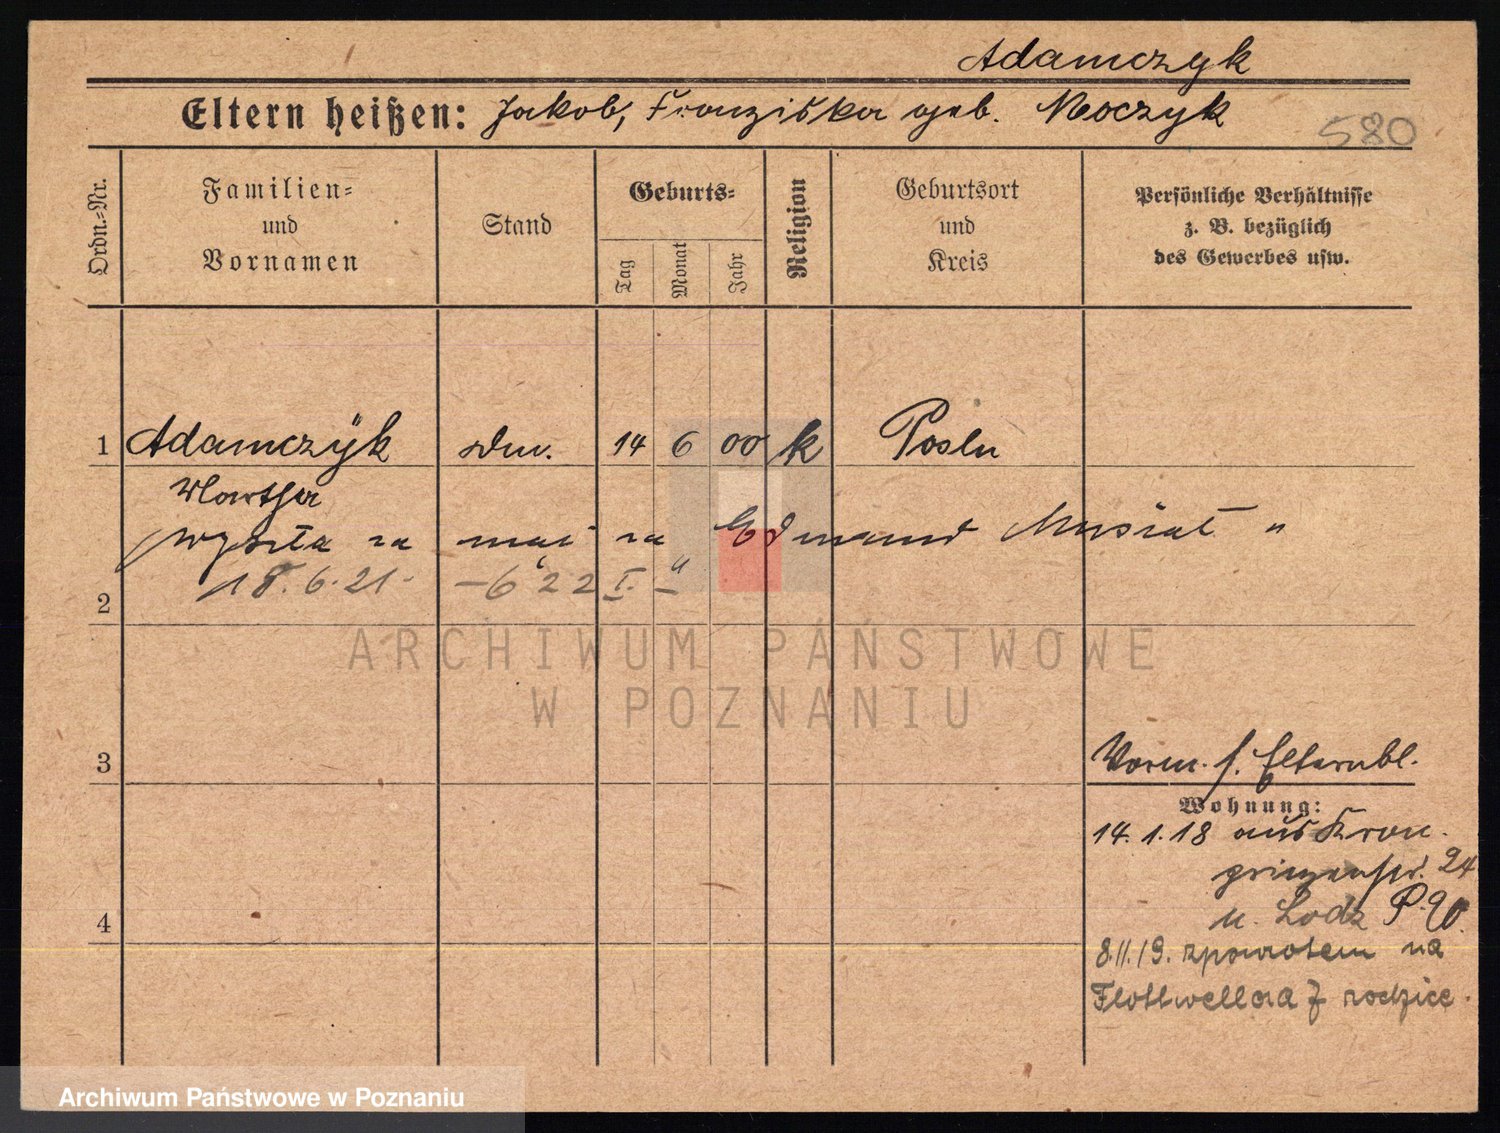 Adamczyk
Eltern heißen: Jakob, Franziska geb. Moczyk
580
Ordn.=Nr.
Familien=
und
Vornamen
Stand
Geburts=
Tag
Monat
Jahr
Religion
Geburtsort
und
Kreis
Persönliche Verhältnisse
z. B. bezüglich
des Gewerbes usw.
1 Adamczÿk 14 6 00 k Posen
Martha
wyszła za mąż za Edmund Musiał "
18.6.21. – 6 22 I. –
2
ARCHIWUM PAŃSTWOWE
W POZNANIU
3
Vorm. s. Elternbl.
Wohnung:
14.1.18 aus Kron-
prinzenstr. 24
n. Lodz P. 90.
4
8.11.19. zpowrotem na
Flottwella 7 rodzice.
Archiwum Państwowe w Poznaniu